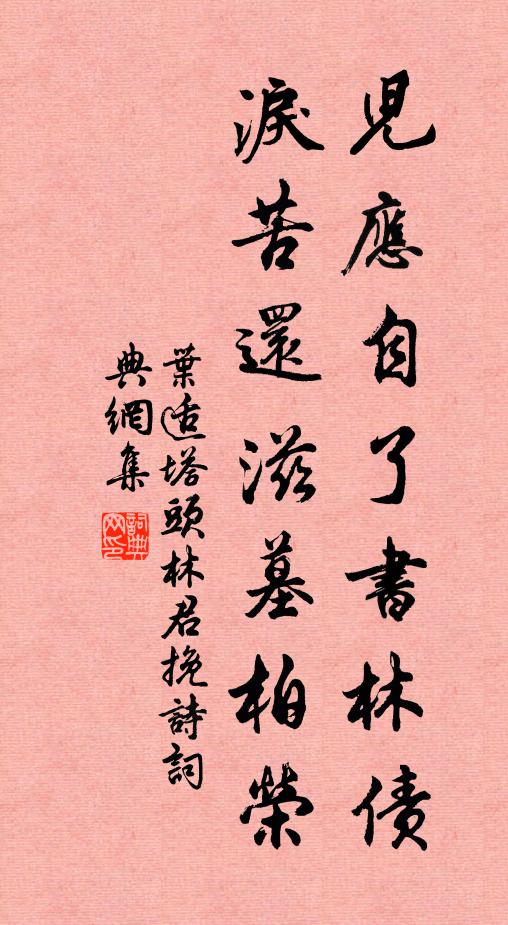 兒應自了書林債
淚苦還滋墓柏榮
葉适塔頭林君挽詩詞
典網集
詞典
网印